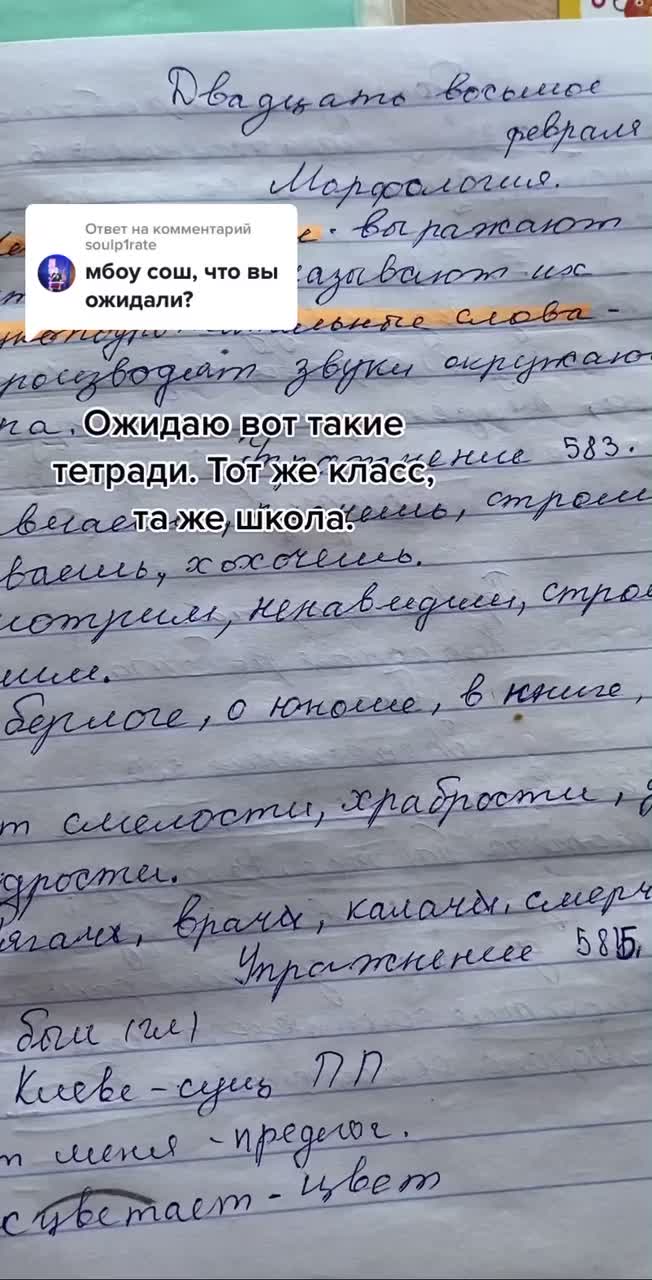 Двадцать восьмое
февраля
Морфология.
Ответ на комментарий
soulp1rate
мбоу сош, что вы
ожидали?
е - выражают
азывают их
слова -
роизводят звуки окружаю
па.
Ожидаю вот такие
тетради. Тот же класс,
та же школа.
583.
строи
ваешь, хохочешь.
мотрим, ненавидим, стро
шим.
берлоге, о юноше, в книге,
т смелости, храбрости,
дрости.
врачи, калачи, смерч
Упражнение 585.
был (гл)
Киеве - сущ ПП
т меня - предлог.
сцветает - цвет